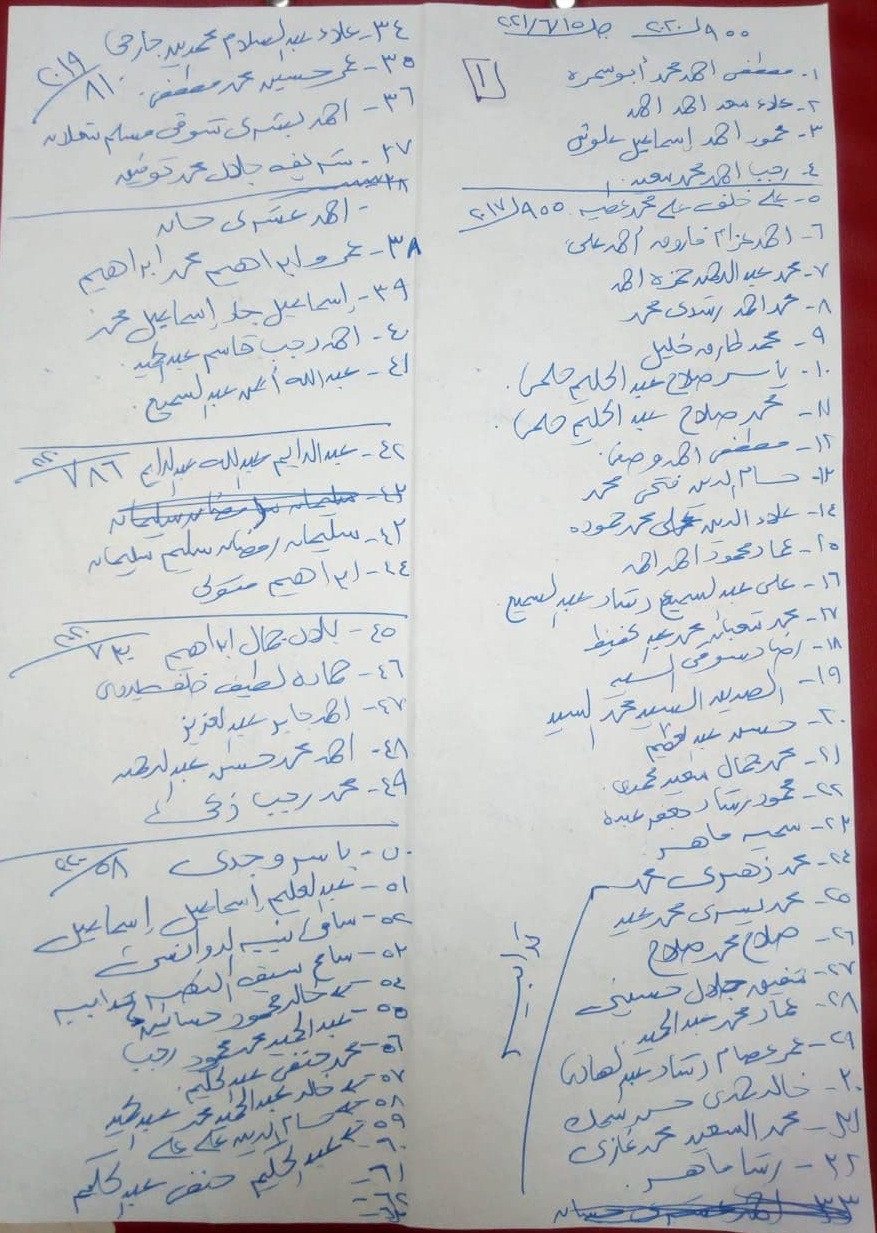 ٩٠٠ لـ ٢٠٢٠ جلسة ٢٠٢١/٦/١٥
١
١- مصطفى احمد محمد أبو سمره
٢- علاء سعد احمد احمد
٣- محمود احمد إسماعيل علوانى
٤- رجب احمد محمد سعيد
٥- على خلف على محمد عطيه ٩٥٥ لـ ٢٠١٧
٦- احمد عزام فاروق احمد على
٧- محمد عبد الرحمن حمزه احمد
٨- محمد احمد رشدى محمد
٩- محمد طارق خليل
١٠- ياسر صلاح عبد الحليم حلمى
١١- محمد صلاح عبد الحليم حلمى
١٢- مصطفى احمد وصفى
١٣- حسام الدين فتحى محمد
١٤- علاء الدين على محمد حموده
١٥- عماد محمود احمد احمد
١٦- على عبد السميع رشاد عبد السميع
١٧- محمد شعبان محمد عبد الحفيظ
١٨- رضا دسوقى السيد
١٩- الصديق السيد محمد السيد
٢٠- حسن عبد العظيم
٢١- محمد جمال سعيد محمدى
٢٢- محمود رشاد جعفر عبده
٢٣- سميه ماهر
٢٤- محمد زهرى محمد
٢٥- محمد يسرى محمد عيد
٢٦- صلاح محمد صلاح
٢٧- شفيق جلال حسينى
٢٨- عماد محمد عبد الحميد
٢٩- عمر عصام رشاد عبد الهادى
٣٠- خالد حمدى حسن
٣١- محمد السعيد محمد غازى
٣٢- رشا ماهر
٣٣
٣٤- علاء عبد السلام محمد
٣٥- عمر حسين محمد مصطفى ٨١٠/٢٠١٩
٣٦- احمد يسرى شوقى مسلم شعلان
٣٧- شريفه جلال محمد توفيق
٣٨
- احمد عشرى حسان
٣٨- عمرو ابراهيم محمد ابراهيم
٣٩- إسماعيل جاد إسماعيل محمد
٤٠- احمد رجب قاسم عبد الحميد
٤١- عبد الله أيمن عبد السميع
٤٢- عبد الدايم عبد الله عبد الدايم ٧٨٦/٢٠٢٠
٤٣- سليمان رمضان سليمان
٤٣- سليمان رمضان سليم سليمان
٤٤- ابراهيم متولى
٤٥- بلال جمال ابراهيم ٧٣٠/٢٠٢٠
٤٦- حماده لطيف خلف
٤٧- احمد جابر عبد العزيز
٤٨- احمد محمد حسن عبد الرحمن
٤٩- محمد رجب زكى
٥٠- ياسر وجدى ٥٨/٢٠٢٠
٥١- عبد العليم إسماعيل إسماعيل
٥٢-
٥٣- سامح سيف
٥٤- خالد محمود حسانين
٥٥- عبد الحميد محمد محمود رجب
٥٦- محمد حنفى عبد الحليم
٥٧- خالد عبد الحميد محمد عبد الحميد
٥٨- حسام الدين على على
٥٩- عبد الحكيم حنفى عبد الحكيم
٦٠-
٦١-
٦٢-